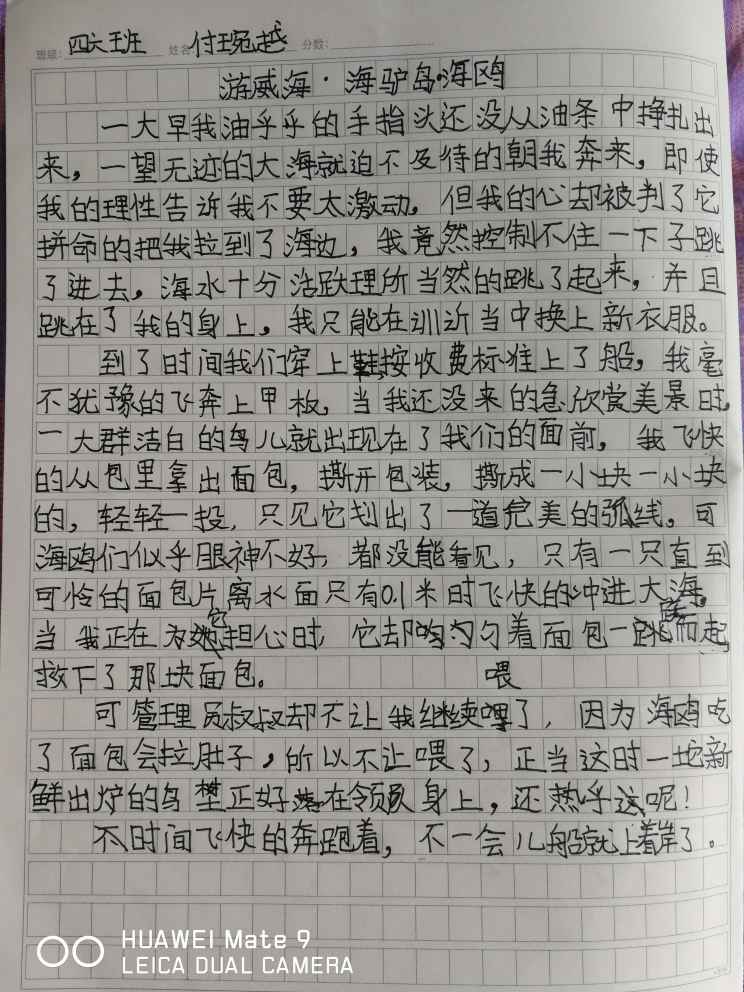 班级: 四六班 姓名: 付琬越 分数:
游威海·海驴岛·海鸥
一大早我油乎乎的手指头还没从油条中挣扎出
来，一望无迹的大海就迫不及待的朝我奔来，即使
我的理性告诉我不要太激动，但我的心却被判了它
拼命的把我拉到了海边，我竟然控制不住一下子跳
了进去，海水十分活跃理所当然的跳了起来，并且
跳在了我的身上，我只能在训近当中换上新衣服。
到了时间我们穿上鞋按收费标准上了船，我毫
不犹豫的飞奔上甲板，当我还没来的急欣赏美景时，
一大群洁白的鸟儿就出现在了我们的面前，我飞快
的从包里拿出面包，撕开包装，撕成一小块一小块
的，轻轻一投，只见它划出了一道完美的弧线。可
海鸥们似乎眼神不好，都没能看见，只有一只直到
可怜的面包片离水面只有0.1米时飞快的冲进大海。
当我正在为它担心时，它却叼着面包一跃而起
救下了那块面包。
可管理员叔叔却不让我继续喂了，因为海鸥吃
了面包会拉肚子，所以不让喂了，正当这时一坨新
鲜出炉的鸟正好在领队身上，还热乎这呢！
时间飞快的奔跑着，不一会儿船就上着岸了。
HUAWEI Mate 9
LEICA DUAL CAMERA